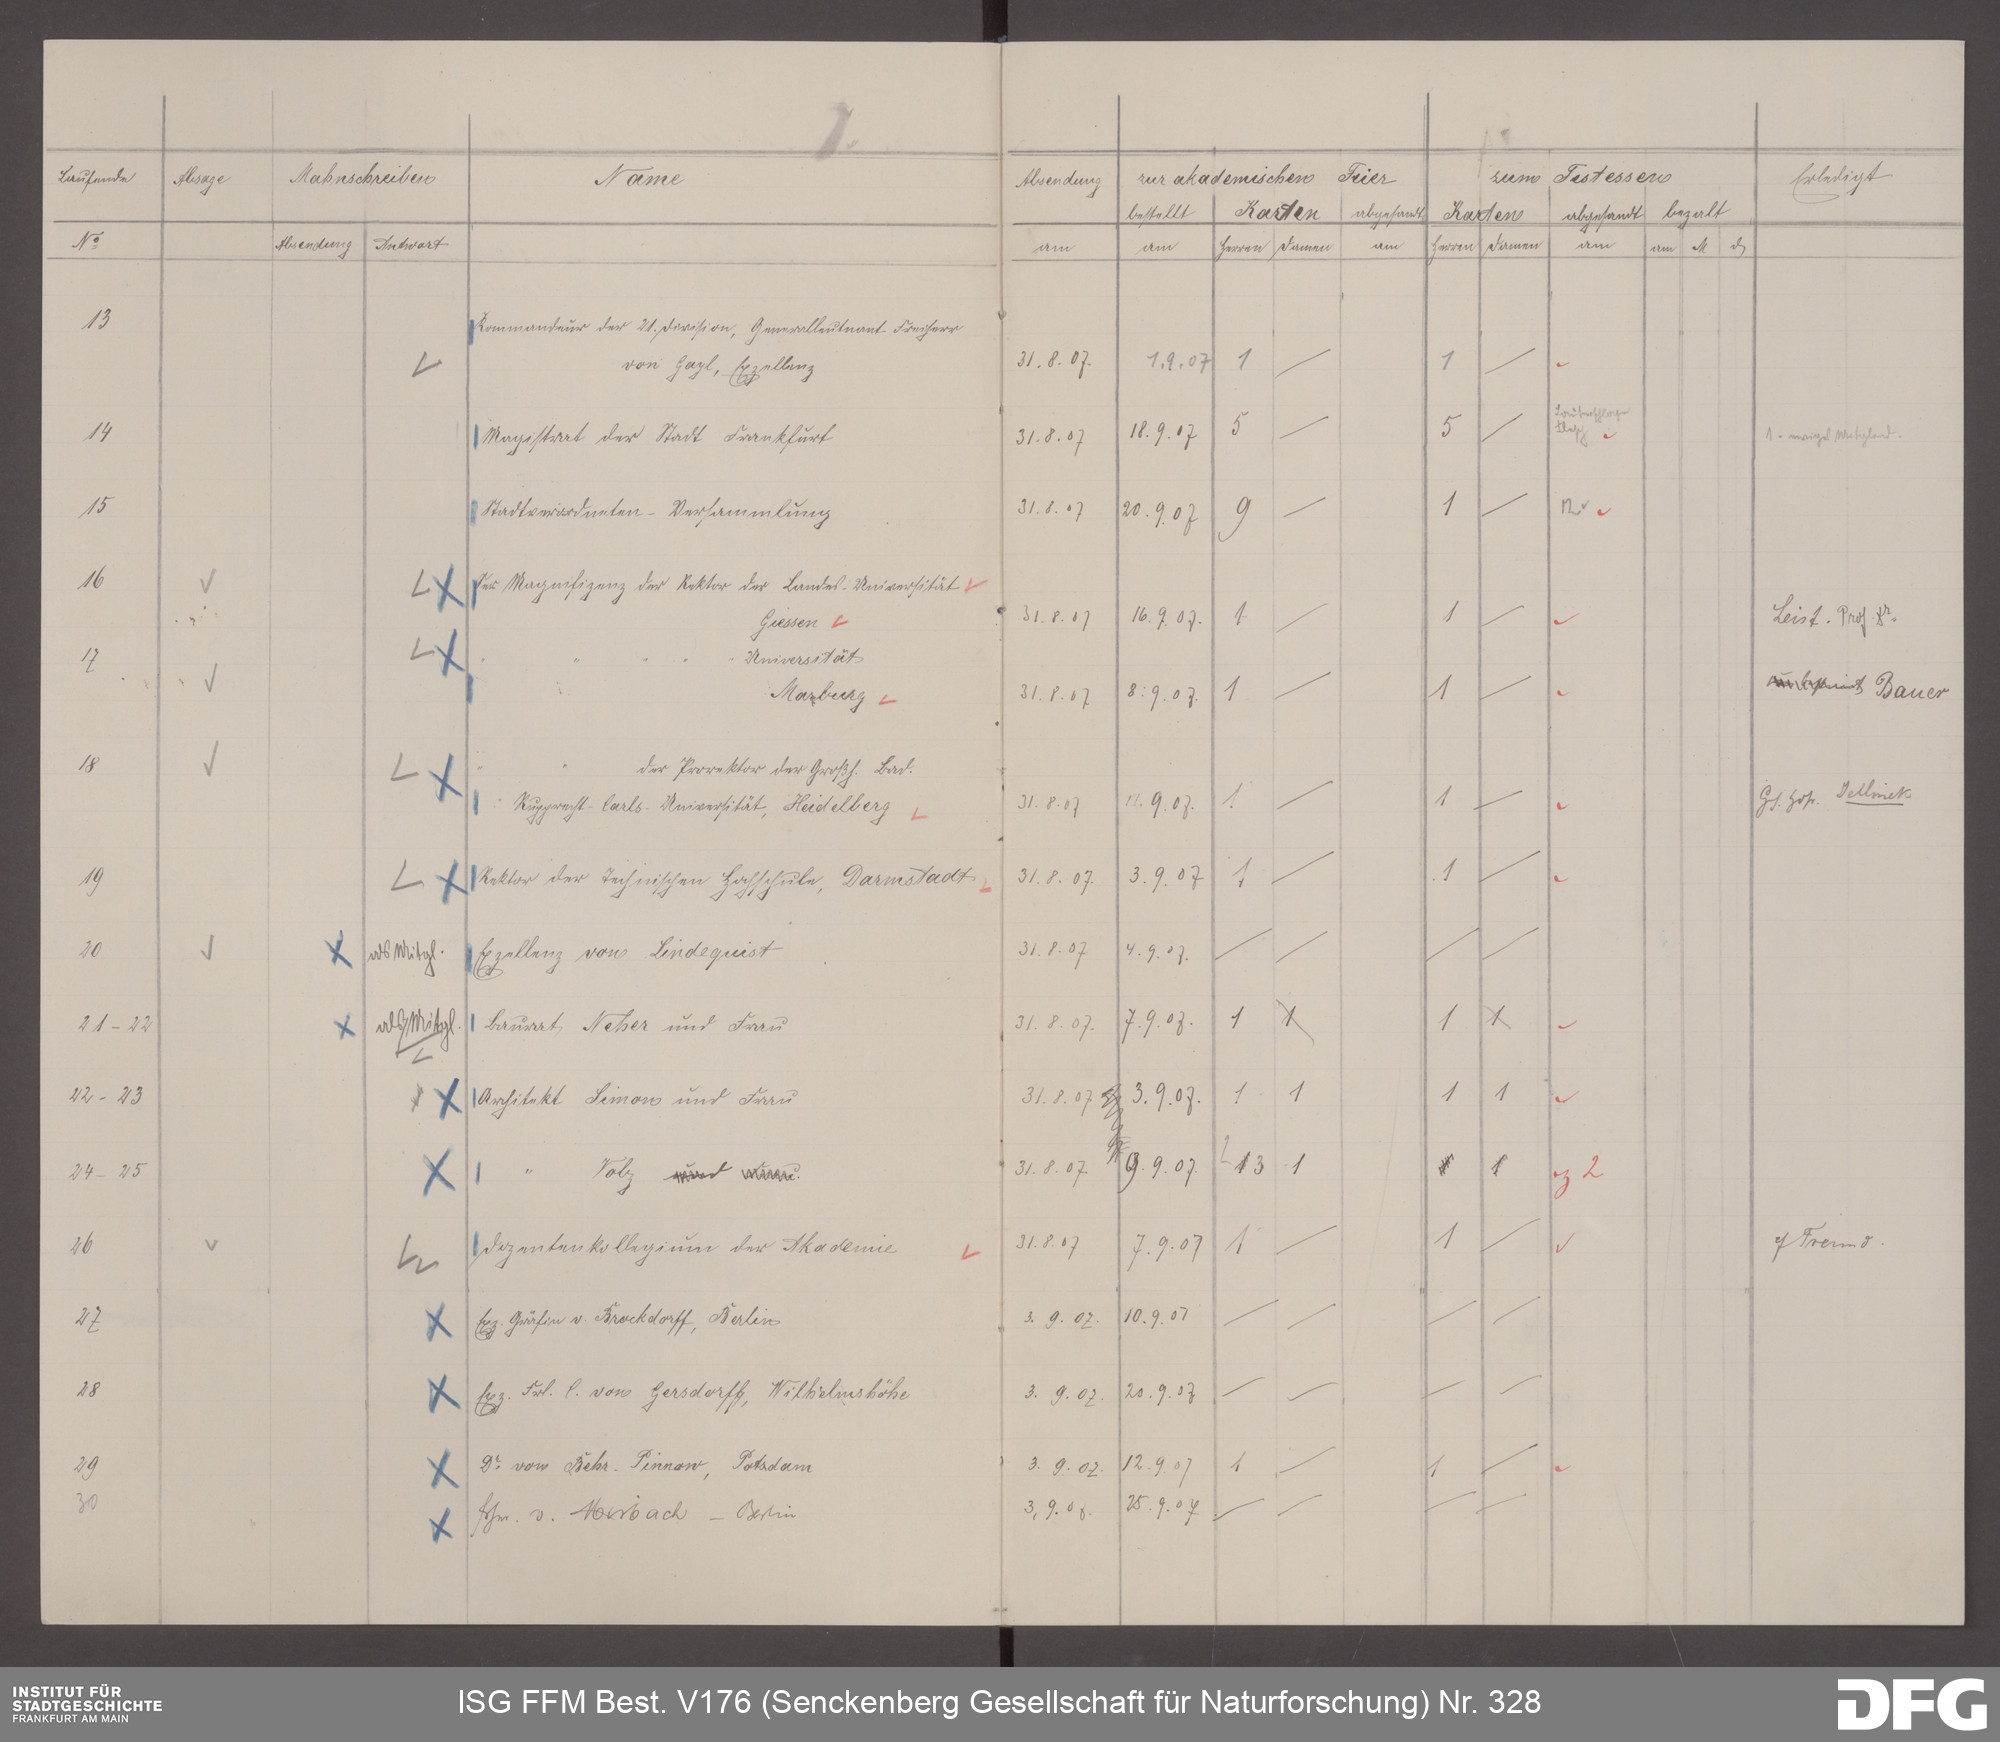 Laufende Absage Mahnschreiben Name Absendung zur akademischen Feier zum Festessen Erledigt
bestellt Karten abgesandt Karten abgesandt bezalt
No Absendung Antwort am am Herren Damen am Herren Damen am am M
13 Kommandeur der 21. Division, Generalleutnant Freiherr
von Gayl, Exzellenz 31.8.07. 1.9.07 1 1
14 Magistrat der Stadt Frankfurt 31.8.07 18.9.07 5 5
15 Stadtverordneten-Versammlung 31.8.07 20.9.07 9 1
16 Magnifizenz der Rektor der Landes-Universität
Giessen 31.8.07 16.9.07. 1 1 Leist. Prof. Dr.
17 " " " " " Universität
Marburg 31.8.07 8.9.07. 1 1 Bauer
18 " " der Prorektor der Großh. Bad.
Rupprecht-Carls-Universität, Heidelberg 31.8.07 9.07. 1 1 Jellinek
19 Rektor der Technischen Hochschule, Darmstadt 31.8.07. 3.9.07 1 1
20 als Mitgl. Exzellenz von Lindequist 31.8.07 4.9.07.
21-22 als Mitgl. Baurat Neher und Frau 31.8.07. 7.9.07. 1 1 1 1
22-23 Architekt Simon und Frau 31.8.07 3.9.07. 1 1 1 1
24-25 " Volz und 31.8.07. 9.9.07. 3 1 1 2
26 Dozentenkollegium der Akademie 31.8.07 7.9.07 1 1 Freund.
27 Exz. Gräfin v. Brockdorff, Berlin 3.9.07. 10.9.07
28 Exz. Frl. C. von Gersdorff, Wilhelmshöhe 3.9.07. 20.9.07
29 Dr. von Behr-Pinnow, Potsdam 3.9.07. 12.9.07 1 1
30 Frhr. v. Mirbach - Berlin 3.9.07. 25.9.07
INSTITUT FÜR
STADTGESCHICHTE
FRANKFURT AM MAIN
ISG FFM Best. V176 (Senckenberg Gesellschaft für Naturforschung) Nr. 328
DFG